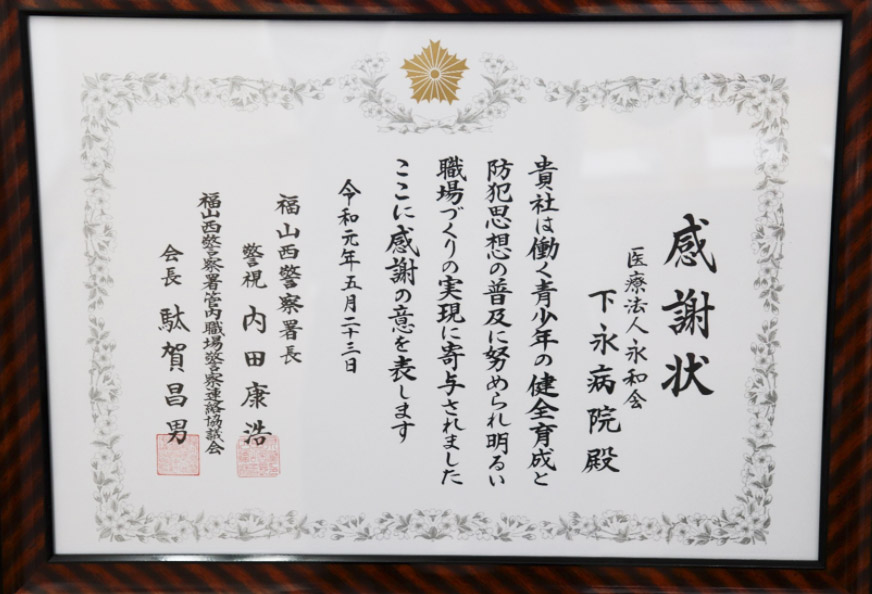 感謝状
医療法人永和会
下永病院殿
貴社は働く青少年の健全育成と
防犯思想の普及に努められ明るい
職場づくりの実現に寄与されました
ここに感謝の意を表します
令和元年五月二十三日
福山西警察署長
警視 内田康浩
福山西警察署管内職場警察連絡協議会
会長 駄賀昌男